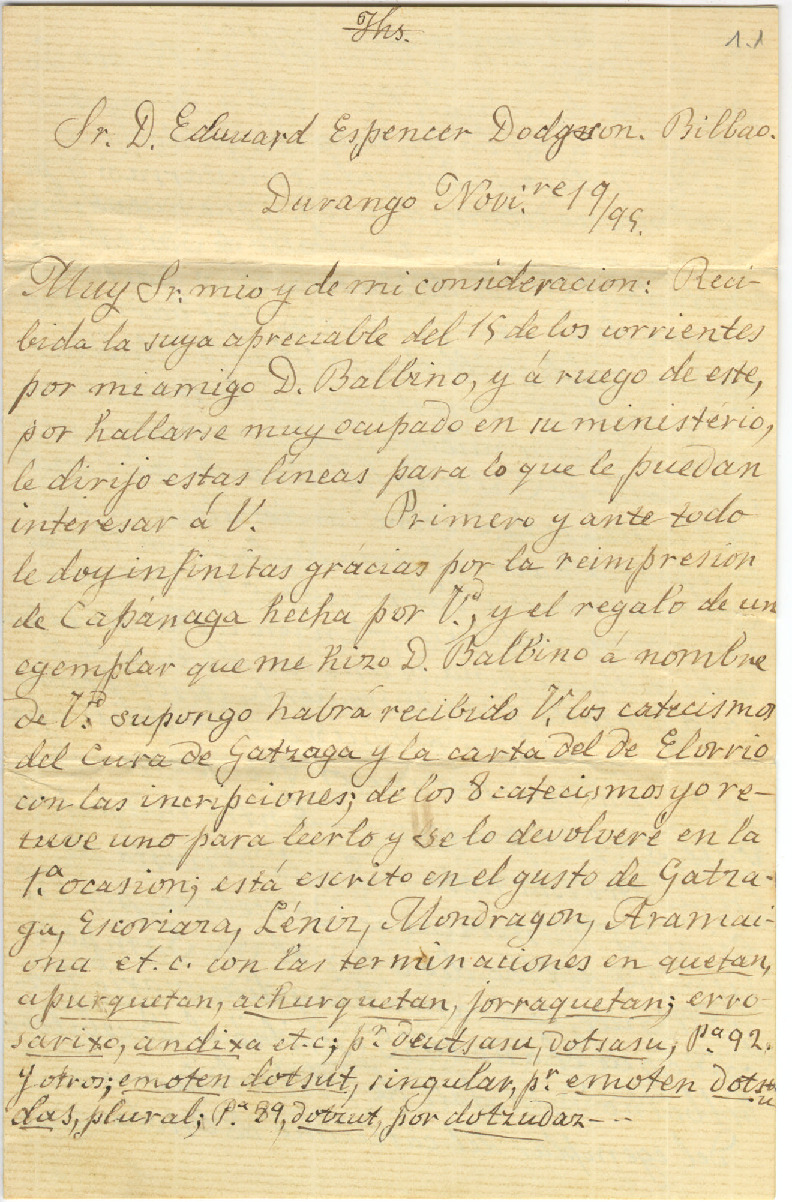 Jhs.
1.1
Sr. D. Eduuard Espencer Dodgson. Bilbao.
Durango Novi.re 19/95.
Muy Sr. mio y de mi consideracion: Reci-
bida la suya apreciable del 15 de los corrientes
por mi amigo D. Balbino, y á ruego de este,
por hallarse muy ocupado en su ministério,
le dirijo estas lineas para lo que le puedan
interesar á V. Primero y ante todo
le doy infinitas grácias por la reimpresion
de Capánaga hecha por V.d, y el regalo de un
egemplar que me hizo D. Balbino á nombre
de V.d supongo habrá recibido V. los catecismos
del Cura de Gatzaga y la carta del de Elorrio
con las incripciones; de los 8 catecismos yo re-
tuve uno para leerlo y se lo devolveré en la
1.a ocasion; está escrito en el gusto de Gatza-
ga, Escoriaza, Léniz, Mondragon, Aramai-
ona et.c. con las terminaciones en quetan,
apurquetan, achurquetan, jorraquetan; erro-
sarixo, andixa et.c; pr. deutsasu, dotsasu, P.a 92.
y otros; emoten dotsut, singular, pr. emoten dotsu
das, plural; P.a 89, dotzut, por dotzudaz---